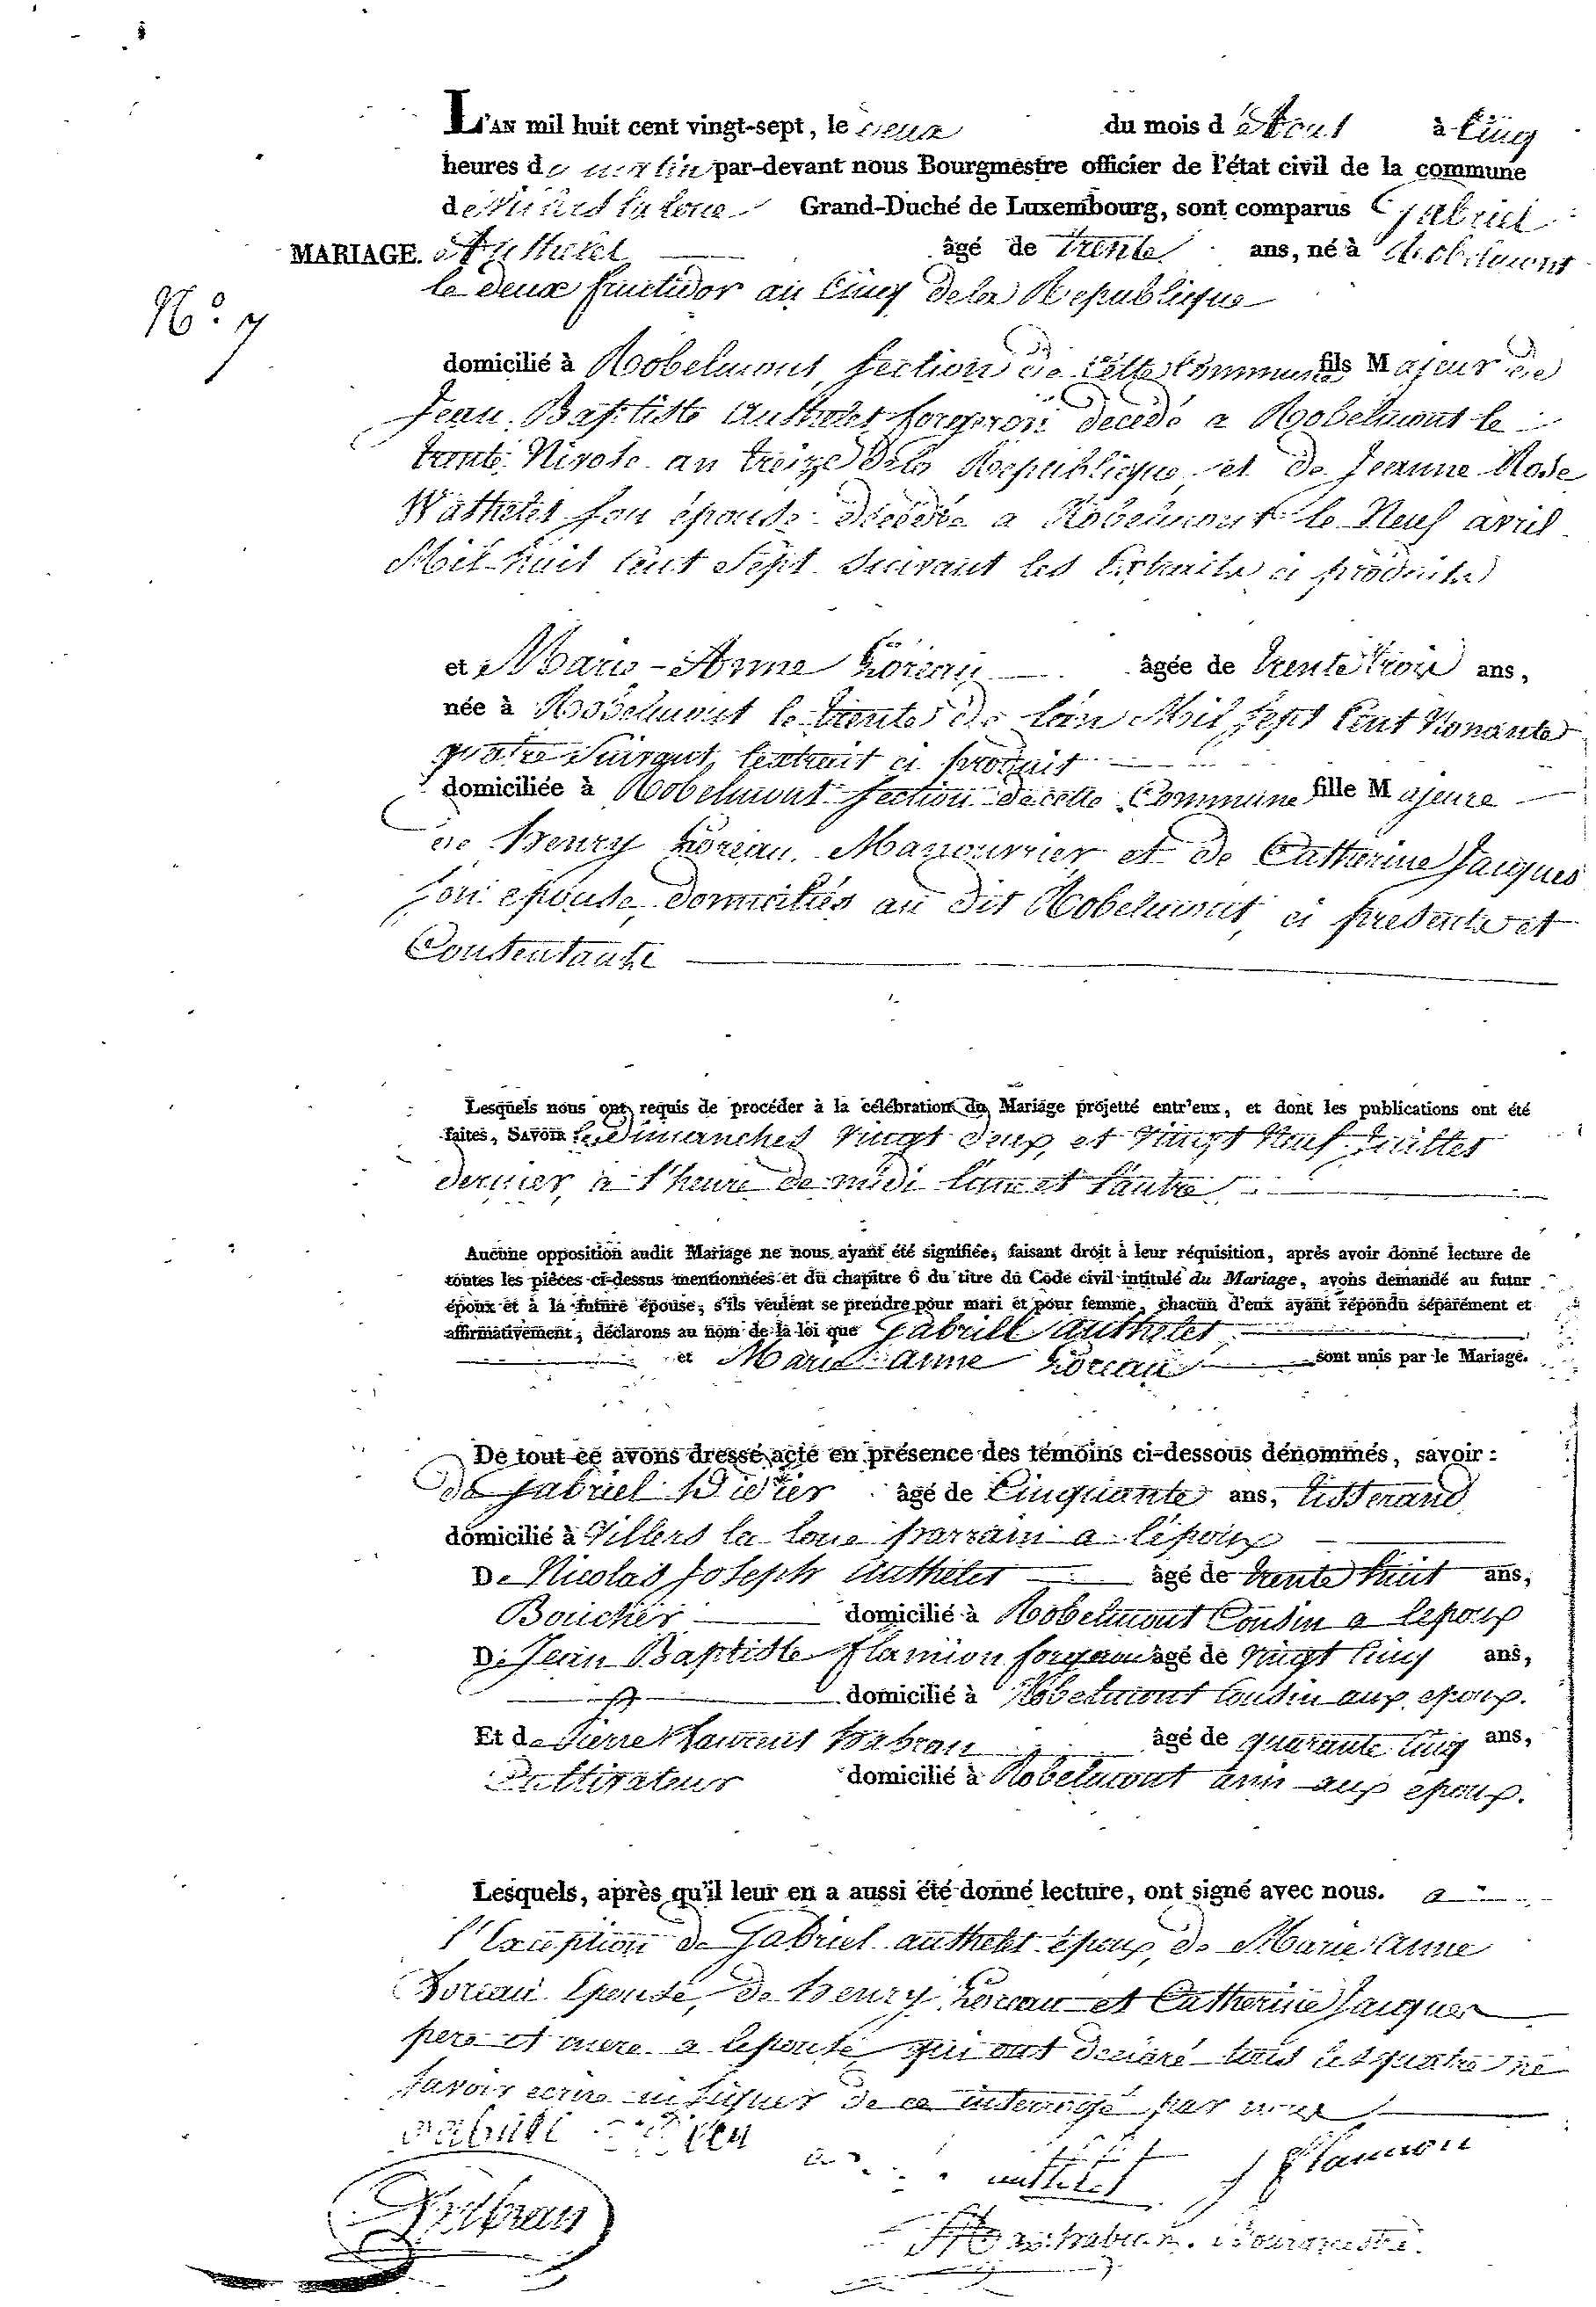 L'AN mil huit cent vingt-sept, le deux du mois d'Aout à Cinq
heures du matin par-devant nous Bourgmestre officier de l'état civil de la commune
de Villers la loue Grand-Duché de Luxembourg, sont comparus Gabriel
MARIAGE. Authelet âgé de trente ans, né à Robelmont
N.º 7
le deux fructidor an Cinq de la Republique
domicilié à Robelmont, section de cette Commune fils Majeur de
Jean Baptiste Authelet forgeron decedé a Robelmont le
trente Nivose an treize de la Republique et de Jeanne Rose
Wathelet son épouse decedée a Robelmont le Neuf avril
Mil huit cent Sept suivant les Extraits ci produits
et Marie-Anne Loreau âgée de trente trois ans,
née à Robelmont le trente de l'an Mil Sept Cent Nonante
quatre suivant l'extrait ci produit
domiciliée à Robelmont section de cette Commune fille Majeure
de henry Loreau Manouvrier et de Catherine Jacques
son epouse, domiciliés au dit Robelmont, ci presents et
Consentants
Lesquels nous ont requis de procéder à la célébration du Mariage projetté entr'eux, et dont les publications ont été
faites, SAVOIR les Dimanches vingt deux, et vingt Neuf Juillet
dernier, a l'heure de midi l'une et l'autre
Aucune opposition audit Mariage ne nous ayant été signifiée, faisant droit à leur réquisition, après avoir donné lecture de
toutes les pièces ci-dessus mentionnées et du chapitre 6 du titre du Code civil intitulé du Mariage, avons demandé au futur
époux et à la future épouse, s'ils veulent se prendre pour mari et pour femme, chacun d'eux ayant répondu séparément et
affirmativement, déclarons au nom de la loi que Gabriel authelet
et Marie anne Loreau sont unis par le Mariage.
De tout ce avons dressé acte en présence des témoins ci-dessous dénommés, savoir :
de Gabriel Didier âgé de Cinquante ans, tisserand
domicilié à Villers la loue parrain a l'époux
De Nicolas Joseph authelet âgé de trente huit ans,
Boucher domicilié à Robelmont Cousin a l'epoux
De Jean Baptiste flamion forgeron âgé de vingt Cinq ans,
domicilié à Robelmont Cousin aux epoux.
Et de Pierre Laurent habran âgé de quarante Cinq ans,
Cultivateur domicilié à Robelmont ami aux epoux.
Lesquels, après qu'il leur en a aussi été donné lecture, ont signé avec nous. a
l'Exception de Gabriel authelet époux, de Marie Anne
Loreau Epouse, de henry Loreau et Catherine Jacques
pere et mere a lepouse, qui ont declaré tous les quatre ne
savoir ecrire ni signer de ce interrogé par nous
authelet J flamion
habran Bourgmestre.